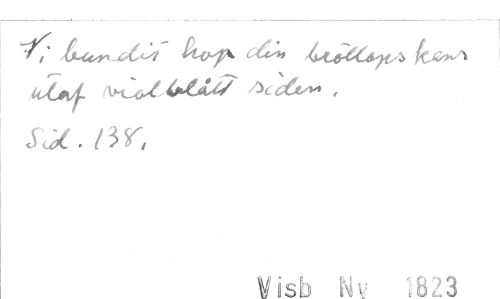 Vi bundit hop din bröllopskans
utaf violblått siden.
Sid. 138.
Visb Ny 1823